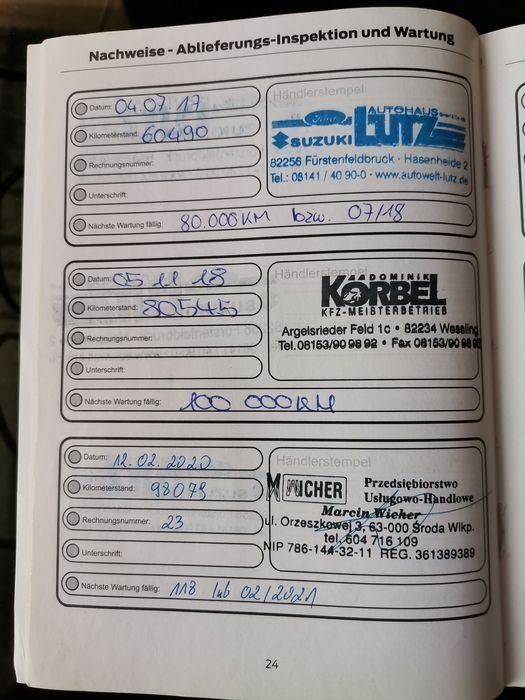 Nachweise - Ablieferungs-Inspektion und Wartung
Datum: 04.07.17
Kilometerstand: 60490
Rechnungsnummer:
Unterschrift:
Nächste Wartung fällig: 80.000KM bzw. 07/18
Händlerstempel
Ford AUTOHAUS
SUZUKI LUTZ
82256 Fürstenfeldbruck · Hasenheide 2
Tel.: 08141 / 40 90-0 · www.autowelt-lutz.de
Datum: 05 11 18
Kilometerstand: 80545
Rechnungsnummer:
Unterschrift:
Nächste Wartung fällig: 100 000KM
Händlerstempel
DOMINIK
KÖRBEL
KFZ-MEISTERBETRIEB
Argelsrieder Feld 1c • 82234 Wessling
Tel. 08153/90 98 92 • Fax 08153/90 98
Datum: 12.02.2020
Kilometerstand: 98079
Rechnungsnummer: 23
Unterschrift:
Nächste Wartung fällig: 118 lub 02/2021
Händlerstempel
WICHER Przedsiębiorstwo
Usługowo-Handlowe
Marcin Wicher
ul. Orzeszkowej 3, 63-000 Środa Wlkp.
tel. 604 716 109
NIP 786-144-32-11 REG. 361389389
24